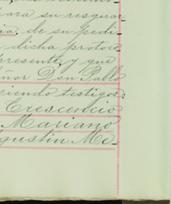 para su resguar
de su pedi
dicha protoco
presente, y que
eñor Don Pablo
ciendo testigos
Crescencio
Mariano
gustin. Me